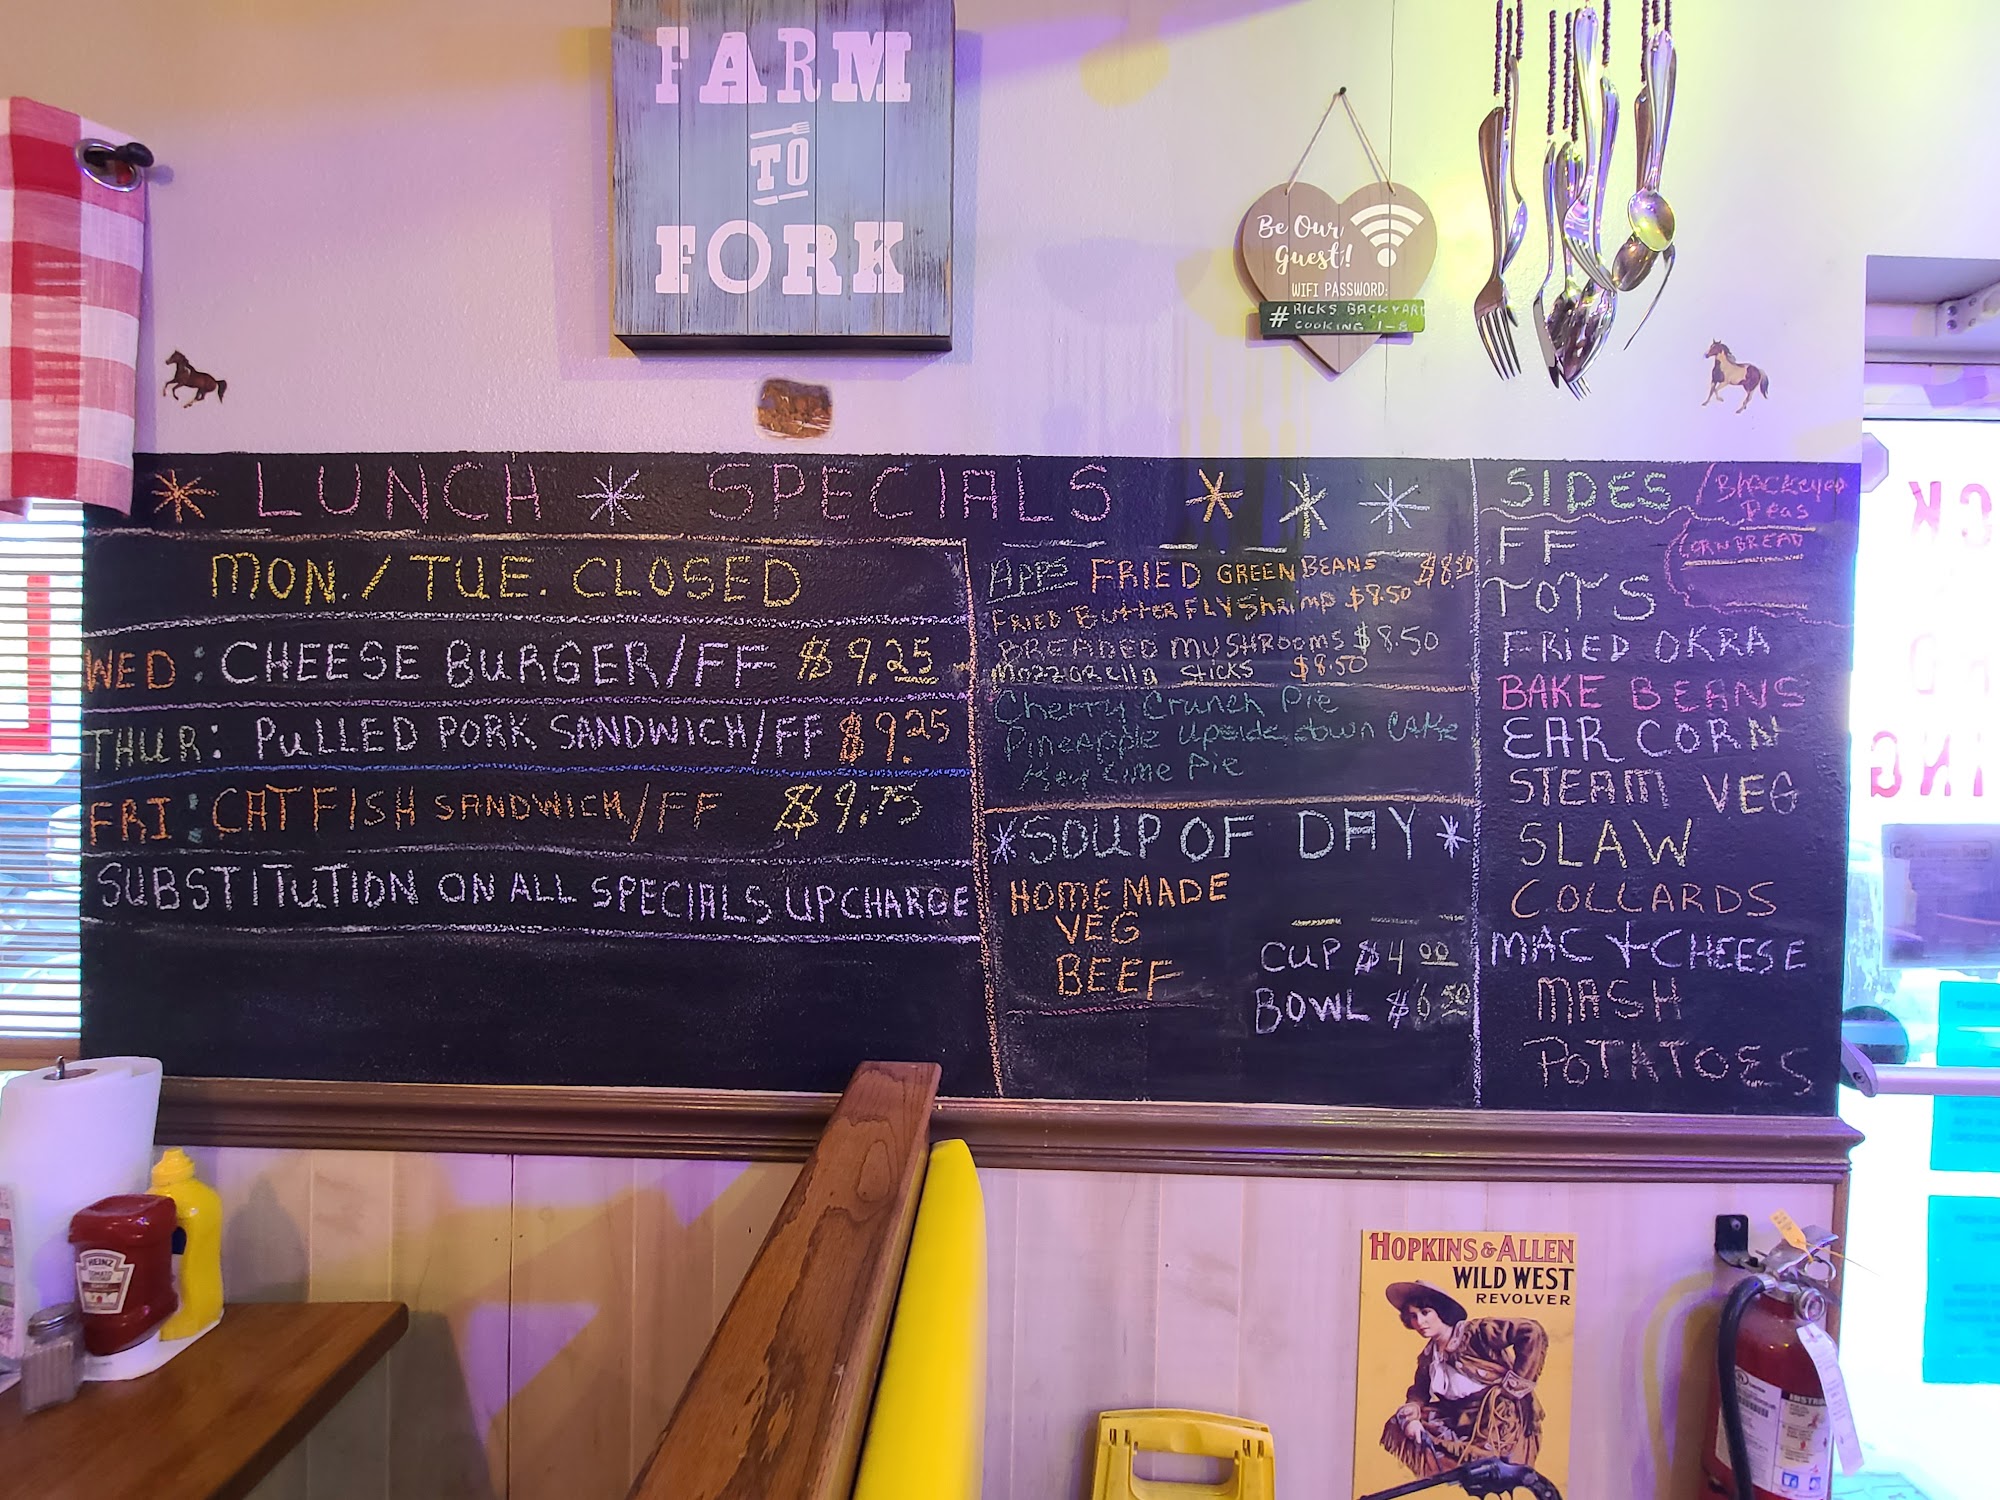 FARM
TO
FORK
Be Our
Guest!
WIFI PASSWORD:
# RICKS BACKYARD
COOKING 1-8
* LUNCH * SPECIALS * * *
MON./TUE. CLOSED
WED: CHEESE BURGER/FF $9.25
THUR: PULLED PORK SANDWICH/FF $9.25
FRI: CATFISH SANDWICH/FF $9.75
SUBSTITUTION ON ALL SPECIALS UPCHARGE
APPS FRIED GREEN BEANS $8.50
FRIED BUTTERFLY SHRIMP $8.50
BREADED MUSHROOMS $8.50
MOZZARELLA STICKS $8.50
Cherry Crunch Pie
Pineapple Upside down Cake
Key Lime Pie
*SOUP OF DAY*
HOMEMADE
VEG
BEEF
CUP $4.00
BOWL $6.50
SIDES / Blackeyed
Peas
CORNBREAD
FF
TOTS
FRIED OKRA
BAKE BEANS
EAR CORN
STEAM VEG
SLAW
COLLARDS
MAC + CHEESE
MASH
POTATOES
HEINZ
TOMATO
HOPKINS & ALLEN
WILD WEST
REVOLVER